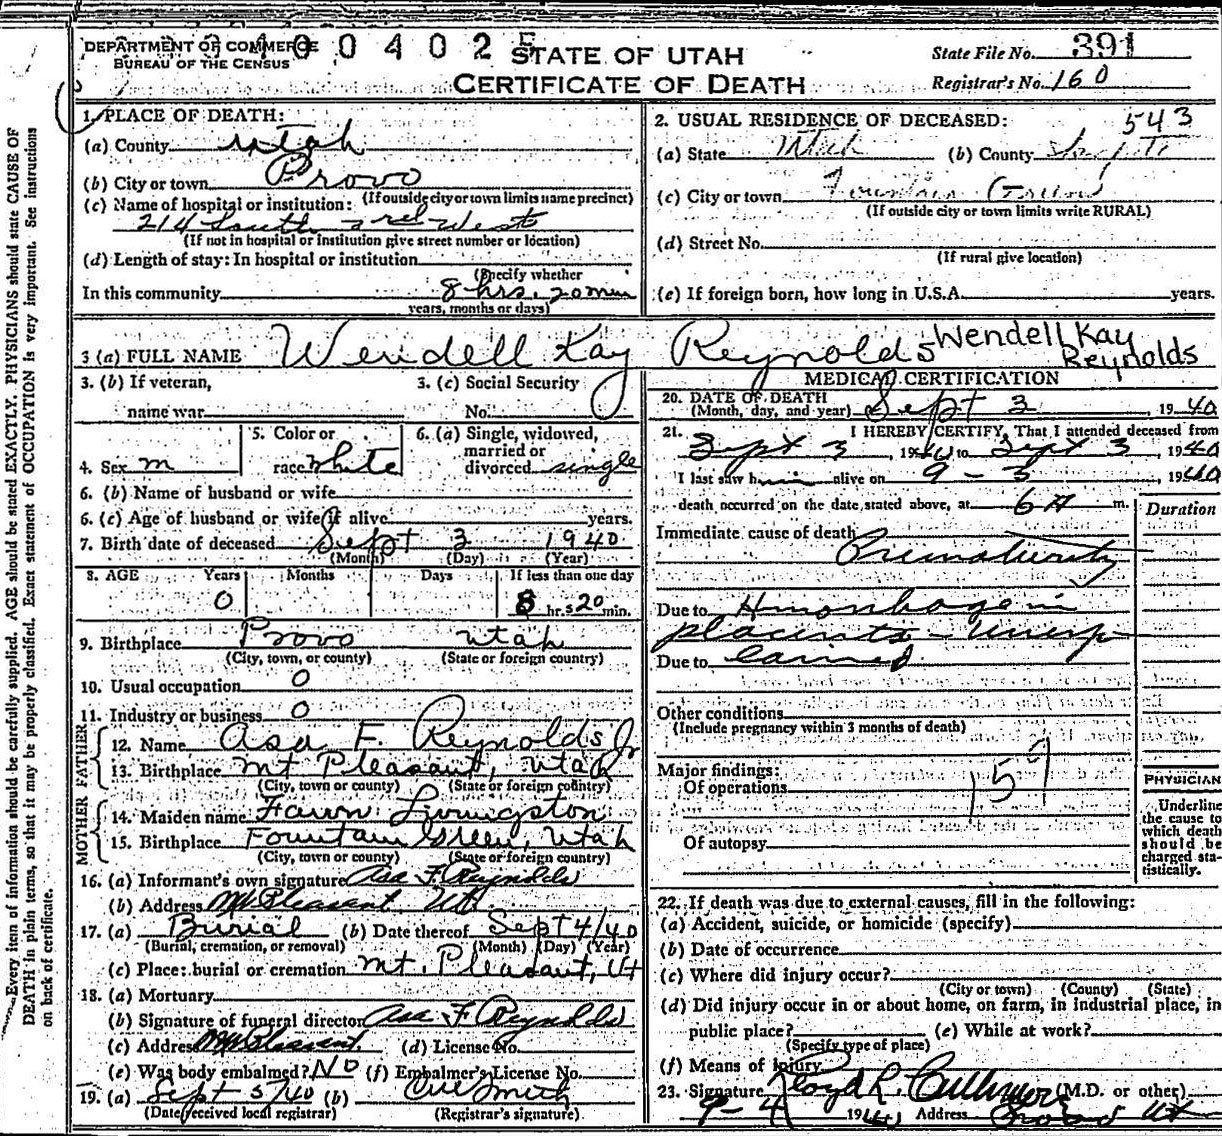 DEPARTMENT OF COMMERCE
BUREAU OF THE CENSUS
0 0 4 0 2
STATE OF UTAH
CERTIFICATE OF DEATH
State File No. 391
Registrar's No. 160
1. PLACE OF DEATH:
(a) County Utah
(b) City or town Provo
(If outside city or town limits name precinct)
(c) Name of hospital or institution:
214 South 3rd West
(If not in hospital or institution give street number or location)
(d) Length of stay: In hospital or institution
(Specify whether
In this community 8 hrs. 20 min
years, months or days)
543
2. USUAL RESIDENCE OF DECEASED:
(a) State Utah (b) County
(c) City or town Fountain Green
(If outside city or town limits write RURAL)
(d) Street No.
(If rural give location)
(e) If foreign born, how long in U.S.A. years.
3 (a) FULL NAME Wendell Kay Reynolds
Wendell Kay
Reynolds
3. (b) If veteran,
name war
3. (c) Social Security
No.
4. Sex m
5. Color or
race white
6. (a) Single, widowed,
married or
divorced single
6. (b) Name of husband or wife
6. (c) Age of husband or wife if alive years.
7. Birth date of deceased Sept 3 1940
(Month) (Day) (Year)
8. AGE Years Months Days If less than one day
0 8 hrs 20 min.
9. Birthplace Provo Utah
(City, town, or county) (State or foreign country)
10. Usual occupation 0
11. Industry or business 0
FATHER
12. Name Asa F. Reynolds Jr
13. Birthplace Mt Pleasant, Utah
(City, town or county) (State or foreign country)
MOTHER
14. Maiden name Fawn Livingston
15. Birthplace Fountain Green, Utah
(City, town or county) (State or foreign country)
16. (a) Informant's own signature Asa F. Reynolds
(b) Address Mt Pleasant Ut
17. (a) Burial (b) Date thereof Sept 4/40
(Burial, cremation, or removal) (Month) (Day) (Year)
(c) Place: burial or cremation Mt. Pleasant, Ut
18. (a) Mortuary
(b) Signature of funeral director Asa F Reynolds
(c) Address Mt Pleasant (d) License No.
(e) Was body embalmed? NO (f) Embalmer's License No.
19. (a) Sept 5/40 (b) Smith
(Date received local registrar) (Registrar's signature)
MEDICAL CERTIFICATION
20. DATE OF DEATH
(Month, day, and year) Sept 3, 1940
21. I HEREBY CERTIFY, That I attended deceased from
Sept 3, 1940 to Sept 3, 1940
I last saw him alive on 9 - 3, 1940
death occurred on the date stated above, at 6 A m.
Duration
Immediate cause of death
Prematurity
Due to Hmorrhage in
placenta - unexp
Due to lained
Other conditions
(Include pregnancy within 3 months of death)
Major findings:
Of operations
159
Of autopsy
PHYSICIAN
Underline
the cause to
which death
should be
charged sta-
tistically.
22. If death was due to external causes, fill in the following:
(a) Accident, suicide, or homicide (specify)
(b) Date of occurrence
(c) Where did injury occur?
(City or town) (County) (State)
(d) Did injury occur in or about home, on farm, in industrial place, in
public place? (e) While at work?
(Specify type of place)
(f) Means of injury
23. Signature Lloyd L. Cullimore (M.D. or other)
9-4 1940 Address Provo Ut
Every item of information should be carefully supplied. AGE should be stated EXACTLY. PHYSICIANS should state CAUSE OF
DEATH in plain terms, so that it may be properly classified. Exact statement of OCCUPATION is very important. See instructions
on back of certificate.